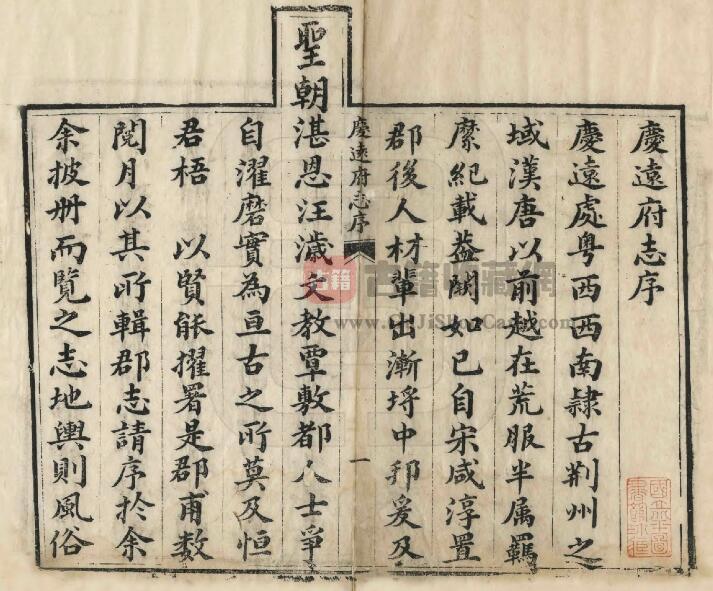 慶遠府志序
慶遠處粤西西南隷古荆州之
域漢唐以前越在荒服半属羈
縻紀載葢闕如已自宋咸淳置
郡後人材輩出漸埒中邦爰及
慶遠府志序
一
聖朝湛恩汪濊文教覃敷都人士爭
自濯磨實為亘古之所莫及恒
君梧 以賢能擢署是郡甫数
閱月以其所輯郡志請序於余
余披册而覽之志地輿則風俗
古籍
古籍收藏網
www.GuJiShouCang.com